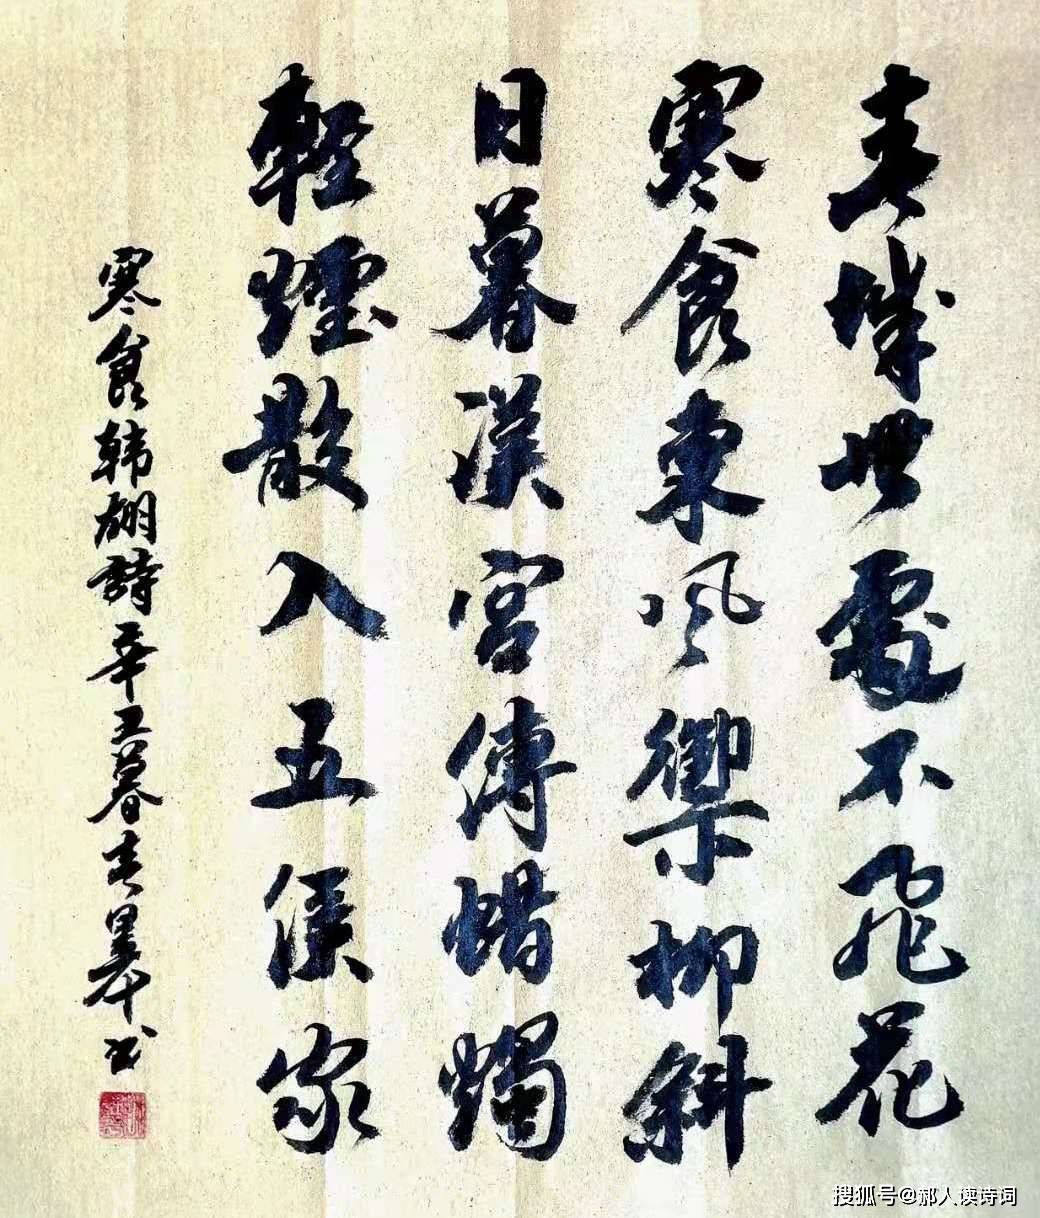 春城無處不飛花
寒食東風禦柳斜
日暮漢宮傳蜡燭
輕煙散入五侯家
寒食韩翃詩辛丑暮春书
搜狐号@郝人读诗词